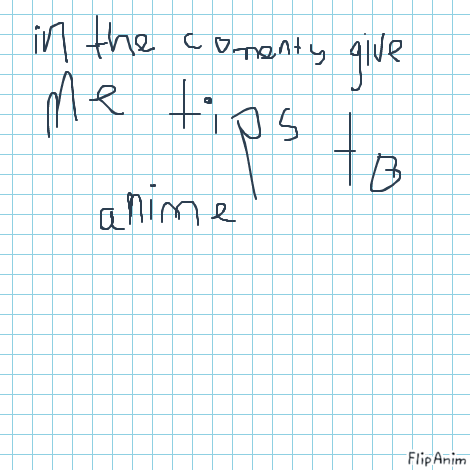 in the comenty give
Me tips to
anime
FlipAnim